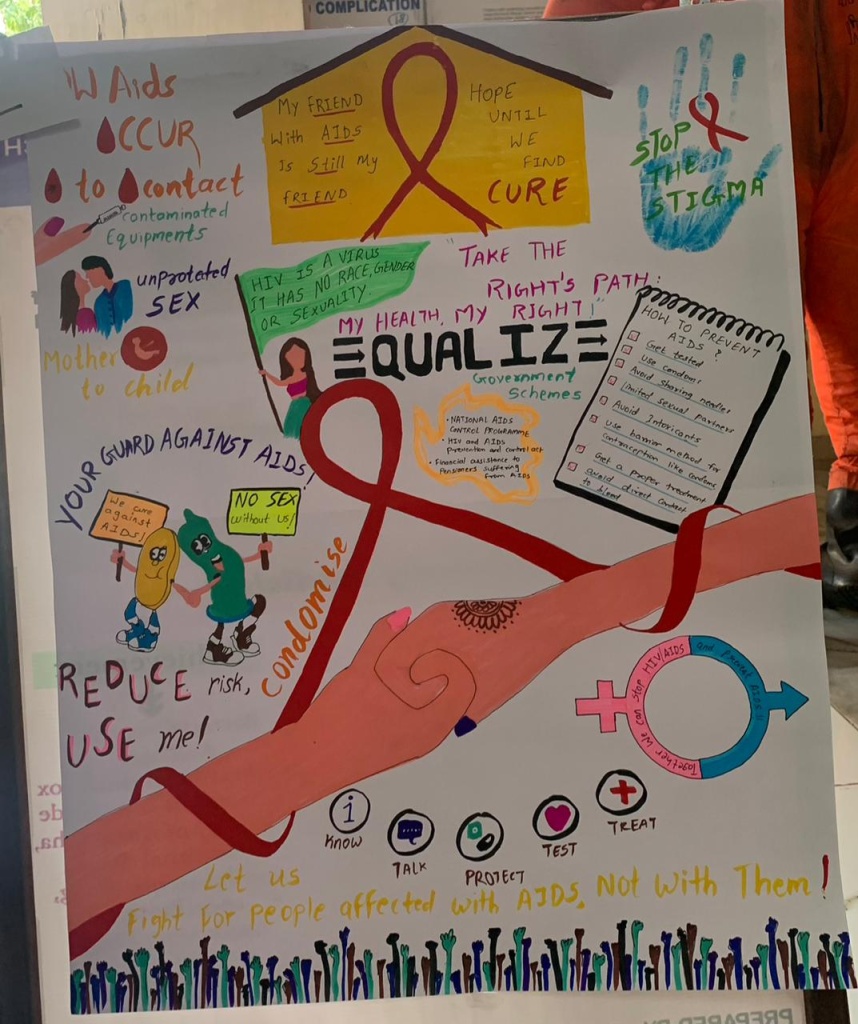 COMPLICATION
W Aids
CCUR
to contact
contaminated
Equipments
unprotated
SEX
Mother
to child
My FRIEND
With AIDS
Is Still My
FRIEND
HOPE
UNTIL
WE
FIND
CURE
STOP
THE
STIGMA
HIV IS A VIRUS
IT HAS NO RACE, GENDER
OR SEXUALITY.
"TAKE THE
RIGHT'S PATH:
MY HEALTH, MY RIGHT!"
EQUALIZE
Government
Schemes
• NATIONAL AIDS
CONTROL PROGRAMME
• HIV and AIDS
Prevention and control act
• Financial assistance to
Pensioners suffering
from AIDS
HOW TO PREVENT
AIDS?
Get tested
Use condoms
Avoid sharing needles
Limited sexual Partners
Avoid Intoricants
Use barrier method for
contraception like condoms
Get a proper treatment
Avoid direct contact
to blood
YOUR GUARD AGAINST AIDS!
We care
against
AIDS!
NO SEX
without us!
Condomise
REDUCE risk,
USE me!
Together We can Stop HIV/AIDS
and Prevent AIDS!!
KNOW
TALK
PROTECT
TEST
TREAT
Let us
Fight For People affected with AIDS, Not With Them!
PREPARED BY